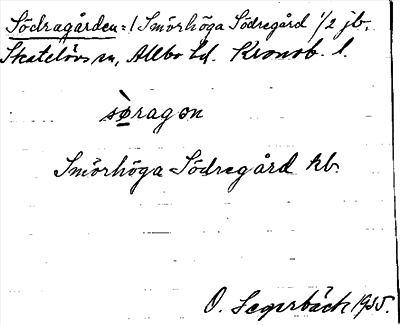 Södragården = (Smörhöga Södregård 1/2 jb.
Skatelövs sn, Allbo hd. Kronob. l.
sø̀ragon
Smörhöga Södregård kb.
O. Segerbäck 1935.